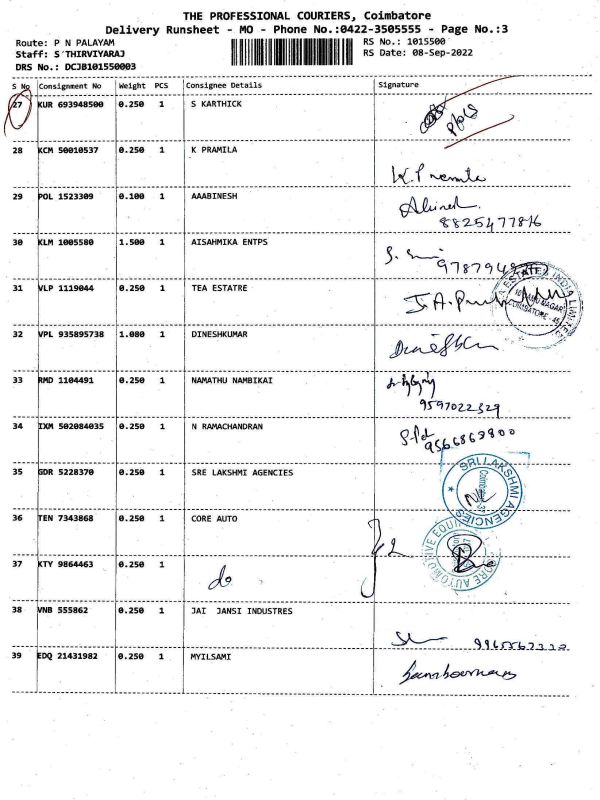 THE PROFESSIONAL COURIERS, Coimbatore
Delivery Runsheet - MO - Phone No.:0422-3505555 - Page No.:3
Route: P N PALAYAM
RS No.: 1015500
Staff: S´THIRVIYARAJ
RS Date: 08-Sep-2022
DRS No.: DCJB101550003
S No Consignment No Weight PCS Consignee Details Signature
27 KUR 693948500 0.250 1 S KARTHICK
28 KCM 50010537 0.250 1 K PRAMILA
K. Pramila
29 POL 1523309 0.100 1 AAABINESH
Abinesh.
8825477816
30 KLM 1005580 1.500 1 AISAHMIKA ENTPS
31 VLP 1119044 0.250 1 TEA ESTATRE
TEA ESTATE INDIA LIMITED
COIMBATORE - 45
32 VPL 935895738 1.080 1 DINESHKUMAR
33 RMD 1104491 0.250 1 NAMATHU NAMBIKAI
9597022329
34 IXM 502084035 0.250 1 N RAMACHANDRAN
9566863800
35 GDR 5228370 0.250 1 SRE LAKSHMI AGENCIES
SRI LAKSHMI AGENCIES
36 TEN 7343868 0.250 1 CORE AUTO
CORE AUTOMOTIVE
37 KTY 9864463 0.250 1 do
38 VNB 555862 0.250 1 JAI JANSI INDUSTRES
39 EDQ 21431982 0.250 1 MYILSAMI